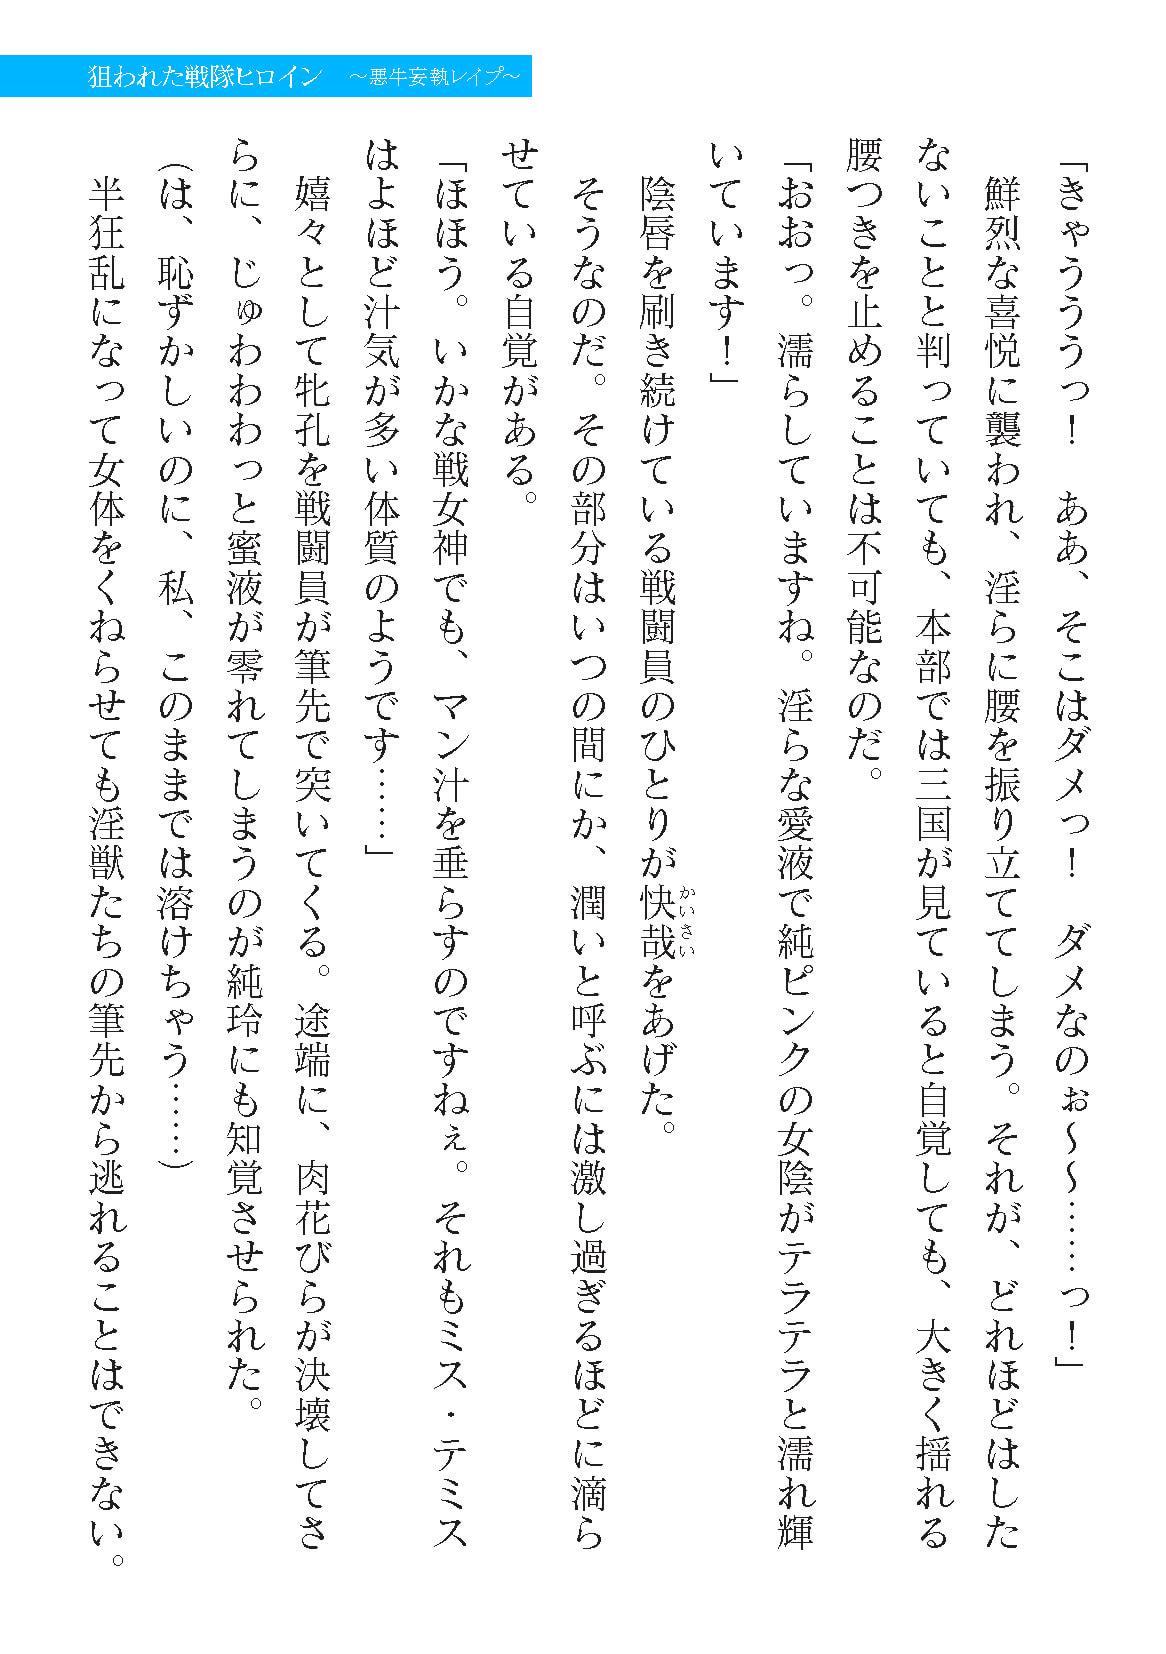 狙われた戦隊ヒロイン　～悪牛妄執レイプ～
「きゃううっ！　ああ、そこはダメっ！　ダメなのぉ～～……っ！」
　鮮烈な喜悦に襲われ、淫らに腰を振り立ててしまう。それが、どれほどはした
ないことと判っていても、本部では三国が見ていると自覚しても、大きく揺れる
腰つきを止めることは不可能なのだ。
「おおっ。濡らしていますね。淫らな愛液で純ピンクの女陰がテラテラと濡れ輝
いています！」
　陰唇を刷き続けている戦闘員のひとりが快哉をあげた。
かいさい
　そうなのだ。その部分はいつの間にか、潤いと呼ぶには激し過ぎるほどに滴ら
せている自覚がある。
「ほほう。いかな戦女神でも、マン汁を垂らすのですねぇ。それもミス・テミス
はよほど汁気が多い体質のようです……」
　嬉々として牝孔を戦闘員が筆先で突いてくる。途端に、肉花びらが決壊してさ
らに、じゅわわわっと蜜液が零れてしまうのが純玲にも知覚させられた。
（は、恥ずかしいのに、私、このままでは溶けちゃう……）
　半狂乱になって女体をくねらせても淫獣たちの筆先から逃れることはできない。